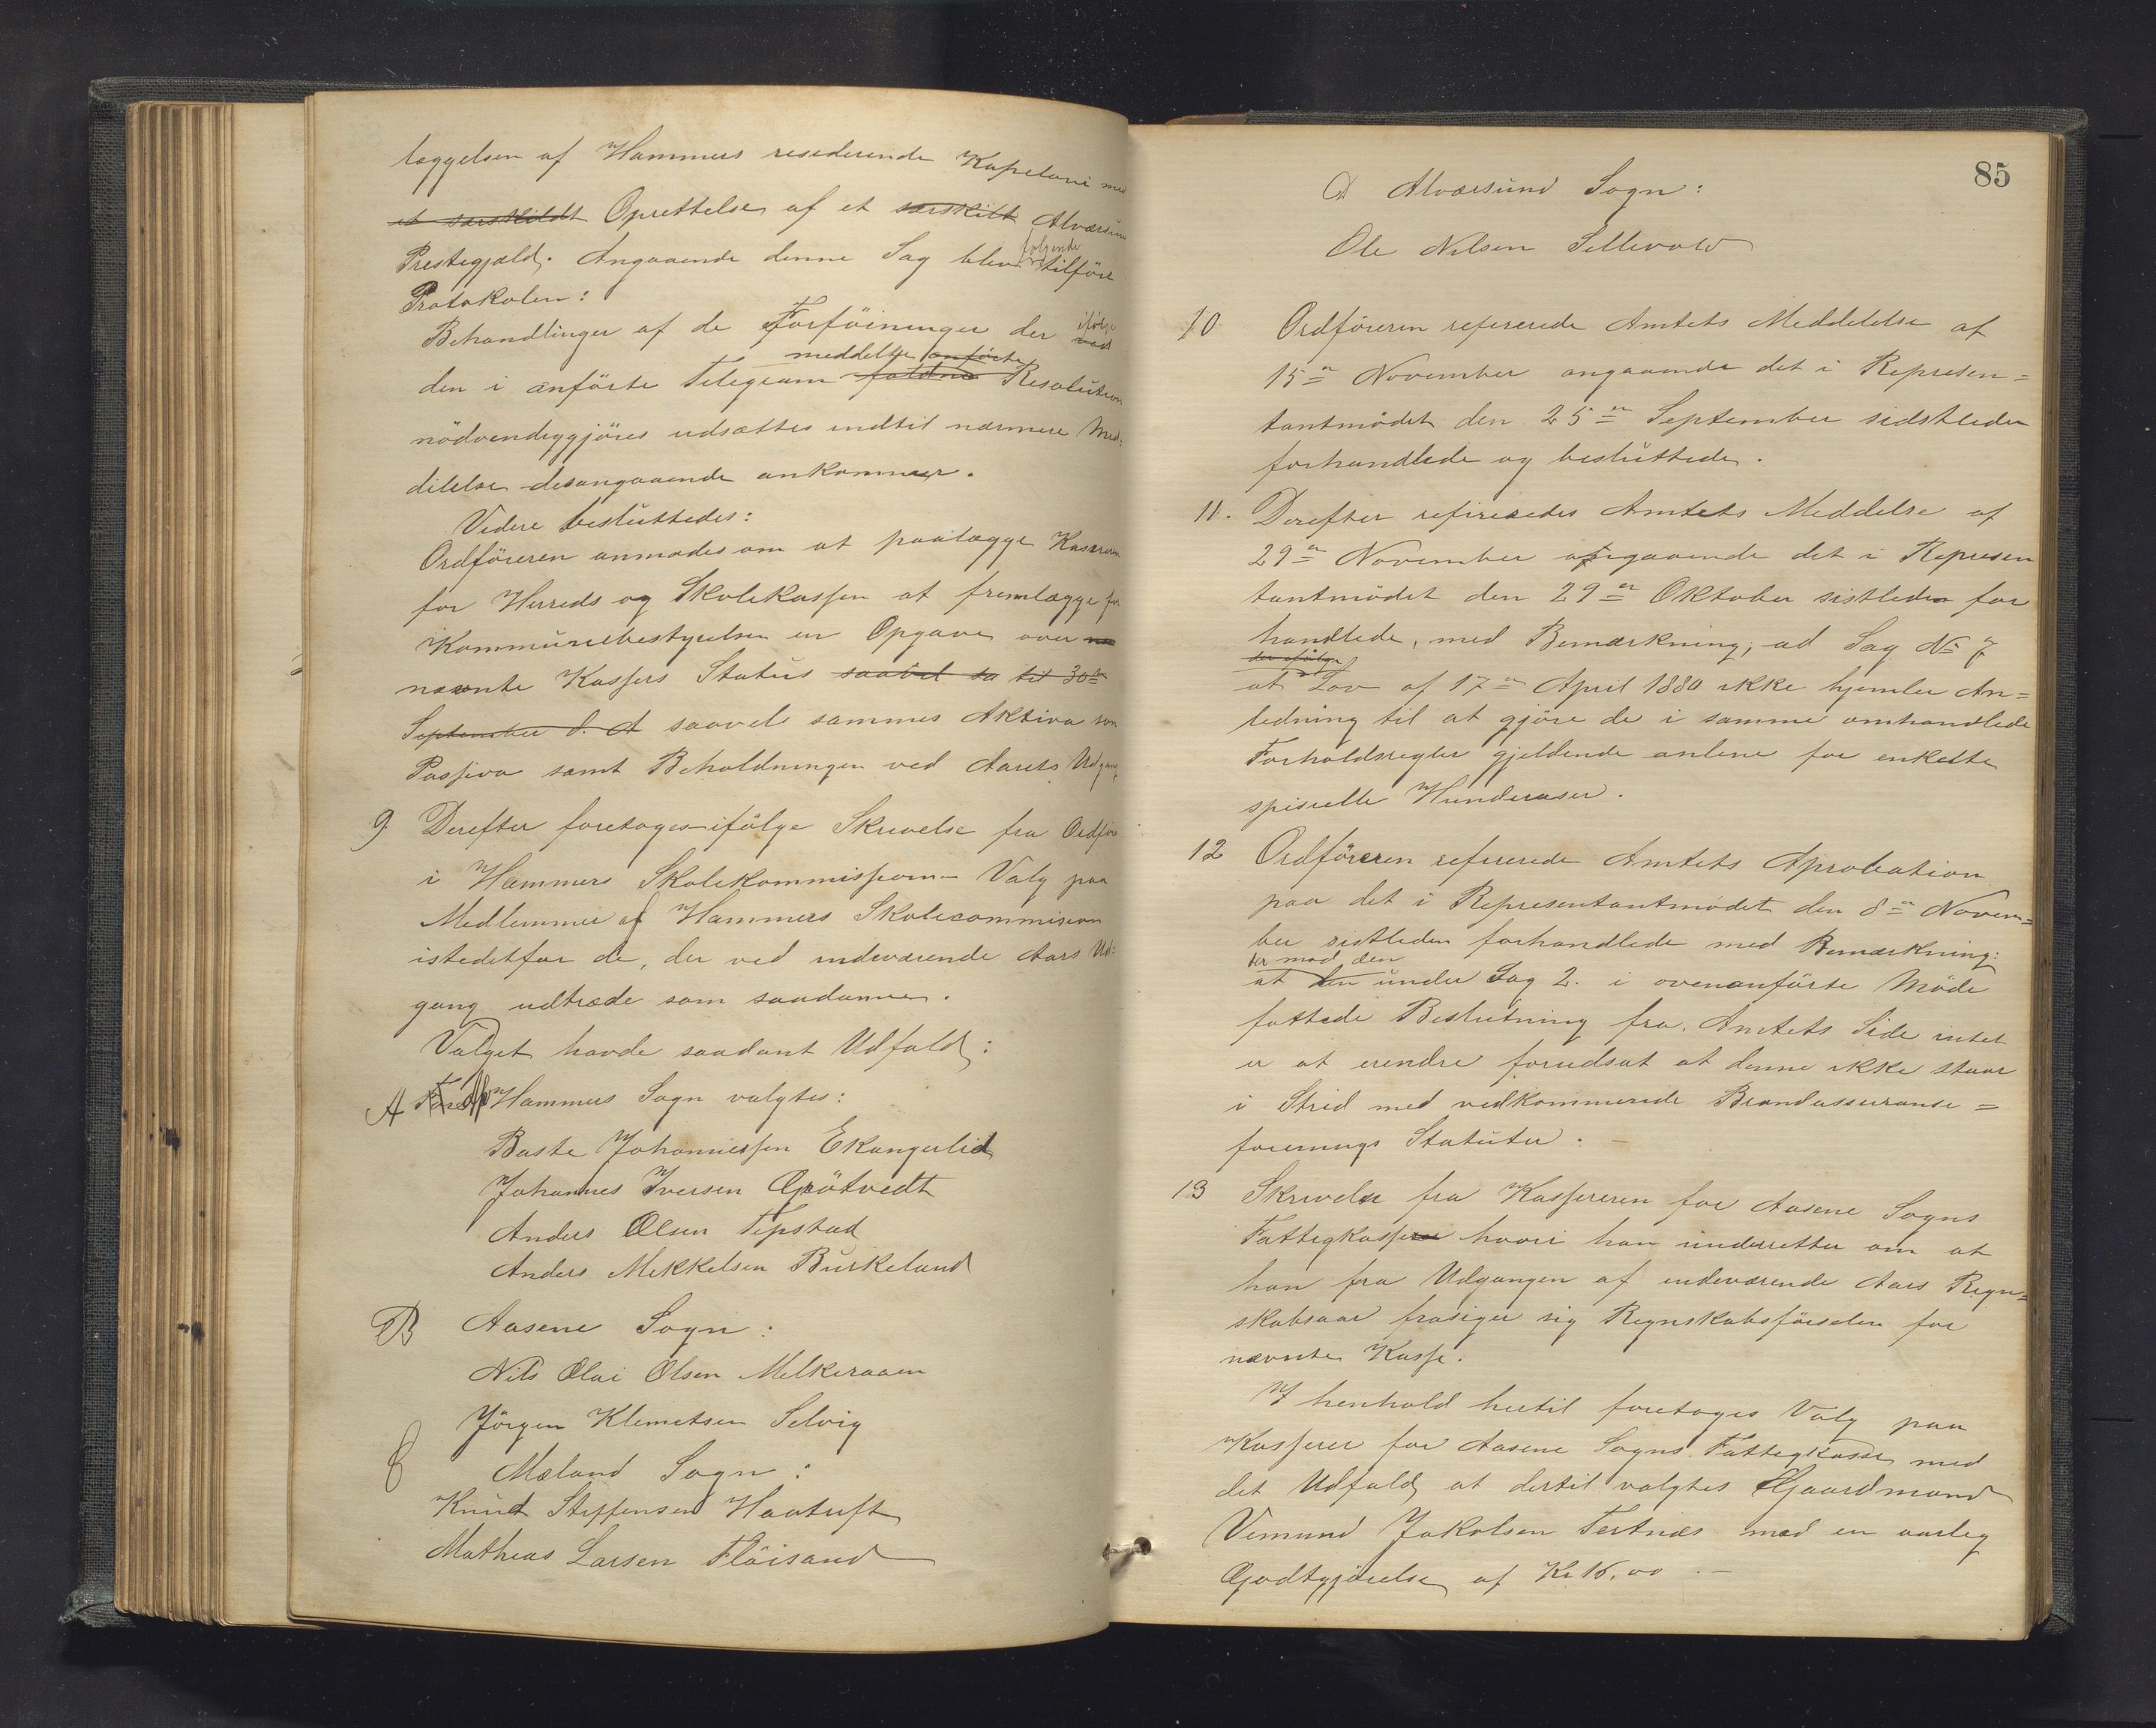 læggelsen af Hammers residerende Kapelani med
et særskildt Oprettelse af et særskilt Alværsund
Prestegjæld. Angaaende denne Sag blev følgende tilført
Protokolen:
Behandlinger af de Forføininger der ifølge ved
meddelte anførte
den i anførte Telegram Resolution
nödvendiggjöres udsættes indtil nærmere Med:
delelse desangaaende ankommer.
Videre besluttedes:
Ordföreren anmodes om at paalægge Kasereren
for Herreds og Skolekassen at fremlægge for
Kommunebestyrelsen en Opgave over
nævnte Kassers Status saavel til 30te
September d. A saavel sammes Aktiva som
Passiva samt Beholdningen ved Aarets Udgang
9 Derefter foretoges ifölge Skrivelse fra Ordför
i Hammers Skolekommission Valg paa
Medlemmer af Hammers Skolecommision
istedetfor de, der ved indeværende Aars Ud:
gang udtræde som saadanne.
Valget havde saadant Udfald:
A For Hammers Sogn valgtes:
Baste Johannessen Ekangerlid
Johannes Iversen Gröttvedt
Anders Olsen Tepstad
Anders Mikkelsen Burkeland
B Aasene Sogn:
Nils Olai Olsen Melkeraaen
Jörgen Klemetsen Selvig
C Mæland Sogn:
Knud Steffensen Haatuft
Mathias Larsen Flöisand
85
D Alværsund Sogn:
Ole Nilsen Sellevold
10 Ordföreren refererede Amtets Meddelelse af
15de November angaaende det i Represen=
tantmödet den 25de September sidstleden
forhandlede og besluttede.
11. Derefter refereredes Amtets Meddelse af
29de November angaaende det i Represen
tantmödet den 29de Oktober sistleden for
handlede, med Bemærkning, ad Sag No 7
der ifølge
at Lov af 17de April 1880 ikke hjemler An=
ledning til at gjöre de i samme omhandlede
Forholdsregler gjeldende anlene for enkelte
spisielle Hunderaser.
12 Ordföreren refererede Amtets Aprobation
paa det i Representantmödet den 8de Novem=
ber sistleden forhandlede med Bemærkning:
der mod den
at den under Sag 2. i ovenanförte Möde
fattede Beslutning fra Amtets Side intet
er at erendre forudsat at denne ikke staar
i Strid med vedkommende Brandassuranse=
forenings Statuter. –
13 Skrivelse fra Kassereren for Aasene Sogns
Fattigkasse hvori han underretter om at
han fra Udgangen af indeværende Aars Regn=
skabsaar frasiger sig Regnskabsförselen for
nævnte Kasse.
I henhold hertil foretoges Valg paa
Kasserer for Aasene Sogns Fattigkasse med
det Udfald at dertil valgtes Gaardmand
Vemund Jakobsen Tertnæs mod en aarlig
Godtgjörelse af Kr 16,00 . –